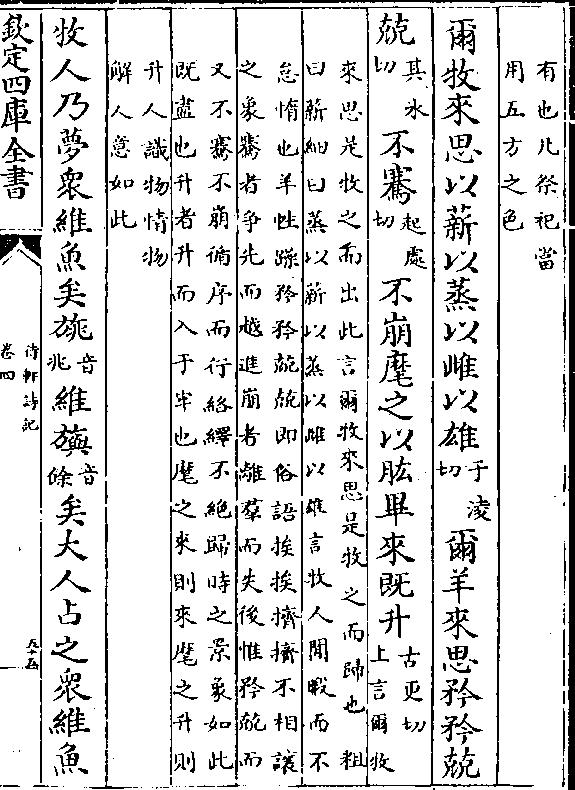 有也凡祭祀當
用五方之色
爾牧來思以薪以蒸以雌以雄于淩切爾羊來思矜矜兢
兢其冰切不騫起處切不崩麾之以肱畢來既升古更切上言爾牧
來思是牧之而出此言爾牧來思是牧之而歸也粗
曰薪細曰蒸以薪以蒸以雌以雄言牧人閒暇而不
怠惰也羊性躁矜矜兢兢即俗語挨挨擠擠不相讓
之象騫者爭先而越進崩者離羣而失後惟矜兢而
又不騫不崩循序而行絡繹不絕歸時之景象如此
既盡也升者升而入于牢也麾之來則來麾之升則
升人識物情物
解人意如此
牧人乃夢衆維魚矣旐音兆維旟音餘矣大人占之衆維魚
欽定四庫全書
待軒詩記
卷四
五十五